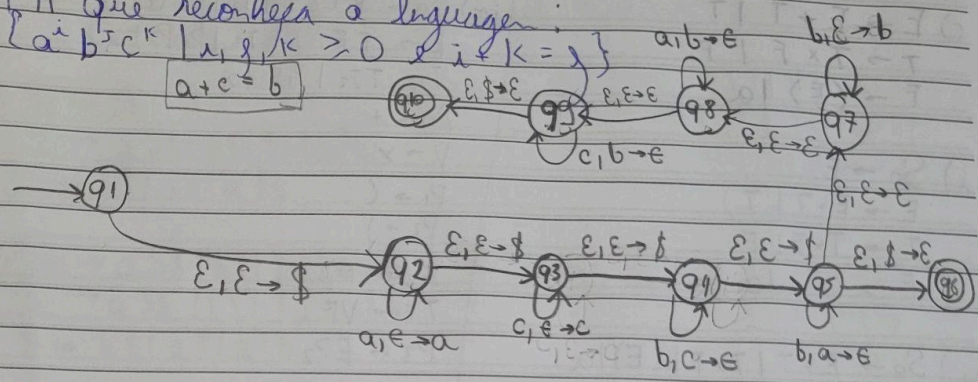 que reconheça a linguagem:
{aⁱ bʲ cᵏ | i, j, k ≥ 0 e i + k = j}
a + c = b
a, b → ε
b, ε → b
q10
ε, $ → ε
q9
ε, ε → ε
q8
ε, ε → ε
q7
c, b → ε
ε, ε → ε
q1
ε, ε → $
q2
ε, ε → $
q3
ε, ε → $
q4
ε, ε → $
q5
ε, $ → ε
q6
a, ε → a
c, ε → c
b, c → ε
b, a → ε